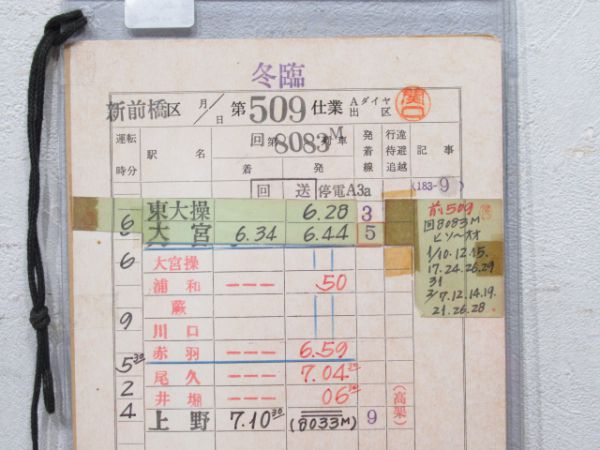 冬臨
新前橋区 月/日 第509仕業 Aダイヤ出区 関口
運転時分 駅名 回第8083M列車 発着線 行違待避追越 記事
着 発
回 送 停電A3a (183-9)
東大操 6.28 3
6 大宮 6.34 6.44 5
6 大宮操 ||
浦和 --- .50
蕨 ||
9 川口 ||
赤羽 --- 6.59
5 30 尾久 --- 7.04
2 井堀 --- 06
4 上野 7.10 30 (8033M) 9
(高架)
前509
回8083M
ヒソ〜オオ
1/10.12.15.
17.24.26.29
31
2/7.12.14.19.
21.26.28.